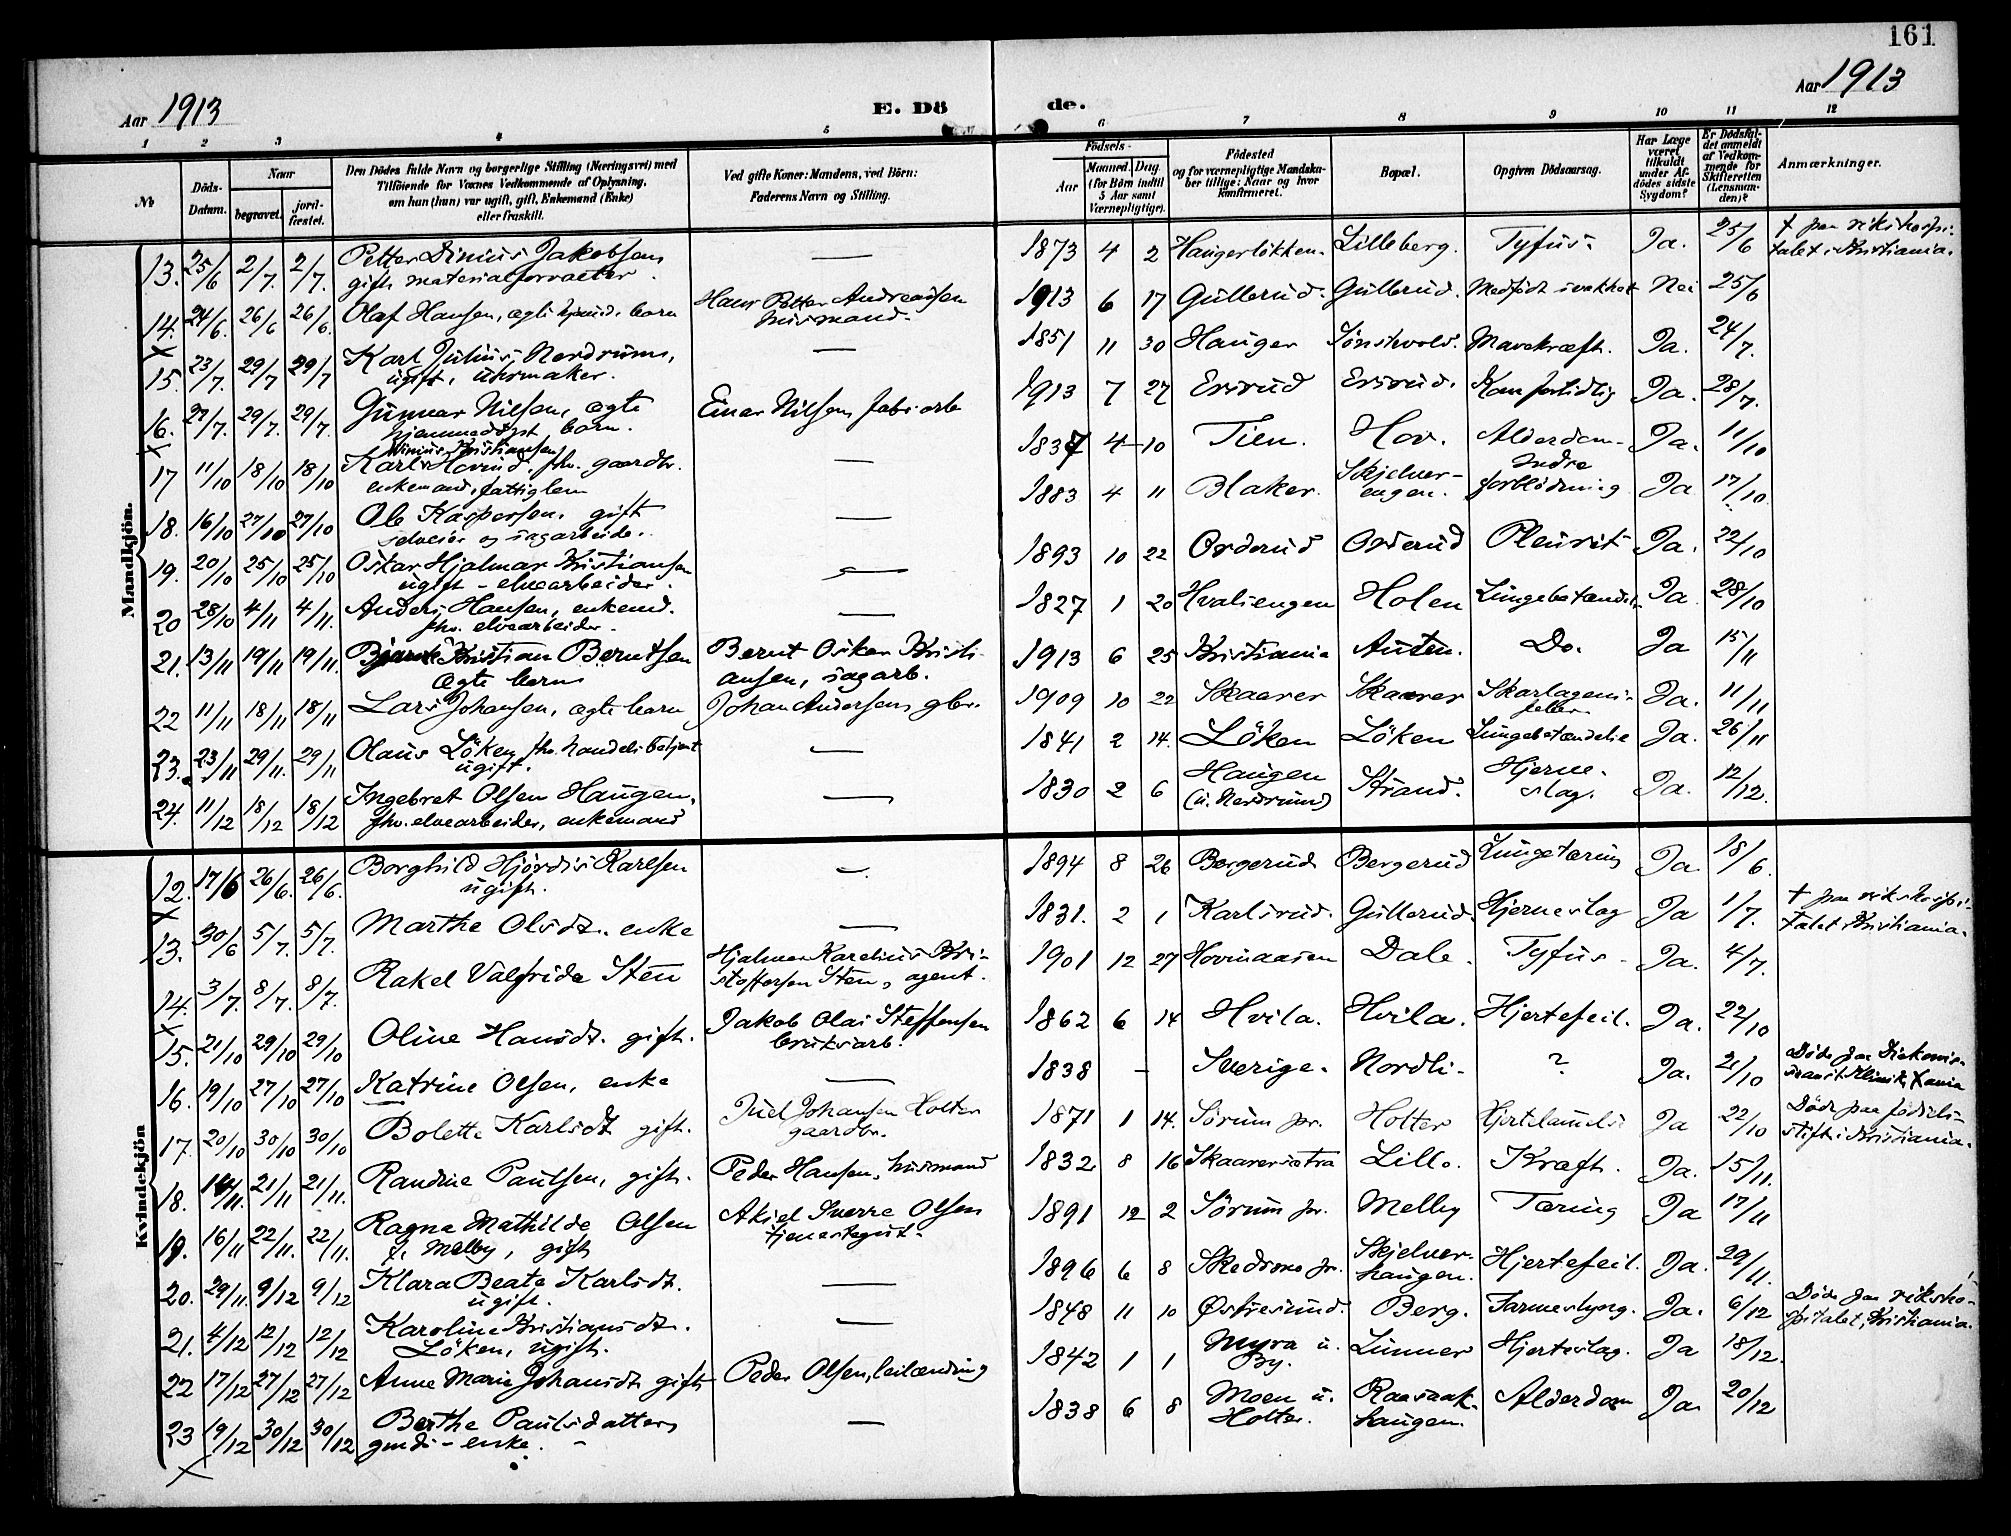 161
Aar 1913
E. Döde.
Aar 1913
1 2 3 4 5 6 7 8 9 10 11 12
No
Döds-Datum.
Naar
begravet.
jord-fæstet.
Den Dödes fulde Navn og borgerlige Stilling (Næringsvei) med
Tilföiende for Voxnes Vedkommende af Oplysning,
om han (hun) var ugift, gift, Enkemand (Enke)
eller fraskilt.
Ved gifte Koner: Mandens, ved Börn:
Faderens Navn og Stilling.
Födsels-
Aar
Maaned. Dag.
(for Börn indtil
5 Aar samt
Værnepligtige).
Födested
og for værnepligtige Mandska-
ber tillige: Naar og hvor
konfirmeret.
Bopæl.
Opgiven Dödsaarsag.
Har Læge
været
tilkaldt
under Af-
dödes sidste
Sygdom?
Er Dödsfal-
det anmeldt
af Vedkom-
mende for
Skifteretten
(Lensman-
den)?
Anmærkninger.
Mandkjön.
13. 25/6 2/7. 2/7. Petter Dinius Jakobsen — 1873 4 2 Haugerlökken. Lilleberg. Tyfus. Ja. 25/6 † paa rikshospi-
gift materialforvalter. talet i Kristiania.
14. 24/6. 26/6 26/6. Olaf Hansen, ægte hjemd. barn Hans Petter Andreassen 1913 6 17 Gullerud. Gullerud. Medfödt svakhet Nei 25/6
husmand.
15. 23/7. 29/7 29/7 Karl Julius Nordrum, — 1851 11 30 Hauger Sönstevold. Mavekræft. Ja. 24/7.
ugift, uhrmaker.
16. 27/7. 29/7. 29/7. Gunnar Nilsen, ægte Einar Nilsen fabr. arb. 1913 7 27 Ersrud Ersrud. Kom fortidlig Ja. 28/7.
hjemmedöpt barn.
17 11/10 18/10 18/10 Karl Hovind, fhv. gaardbr. — 1837 4 10 Tien. Hov. Alderdom. Ja. 11/10
Dinius Kristiansen
enkemand, fattiglem
18. 16/10 27/10 27/10 Ole Kaspersen. gift — 1883 4 11 Blaker. Skjelver-
engen. Indre
forblödning Ja 17/10.
selveier og sagarbeider.
19. 20/10 25/10 25/10 Oskar Hjalmar Kristiansen — 1893 10 22 Orderud Orderud Pleurit Ja. 22/10
ugift - elvearbeider.
20 28/10 4/11 4/11. Anders Hansen, enkemd. — 1827 1 20 Hvalsengen Holen Lungebetændels. Ja 28/10
fhv. elvearbeider.
21. 13/11 19/11 19/11. Bjarne Kristian Berntsen Bernt Oskar Kristi- 1913 6 25 Kristiania Austen. Do. Ja 15/11
ægte barn ansen, sagarb.
22 11/11 18/11 18/11 Lars Johansen, ægte barn Johan Andersen gbr. 1909 10 22 Skaarer Skaarer Skarlagens-
feber Ja. 11/11
23. 23/11 29/11. 29/11 Olaus Löken, fhv. handelsbetjent — 1841 2 14. Löken Löken Lungebetændelse Ja. 26/11
ugift.
24. 11/12 18/12 18/12 Ingebret Olsen Haugen, — 1830 2 6 Haugen
(u. Nordrum) Strand. Hjerne-
slag. Ja. 12/12.
fhv. elvearbeider, enkemand
Kvindekjön
12. 17/6 26/6. 26/6. Borghild Hjördis Karlsen — 1894 8 26 Bergerud Bergerud Lungetæring Ja 18/6.
ugift.
13. 30/6 5/7. 5/7. Marthe Olsdt. enke — 1831. 2 1 Karlsrud. Gullerud. Hjerneslag Ja 1/7. † paa rikshospi-
talet Kristiania.
14. 3/7. 8/7. 8/7. Rakel Valfrida Sten Hjalmar Karelius Kri- 1901 12 27 Hovinaasen Dale. Tyfus. Ja. 4/7.
stoffersen Sten, agent.
15. 21/10 29/10 29/10 Oline Hansdt. gift. Jakob Olai Steffensen 1862 6 14 Hvila. Hvila. Hjertefeil. Ja. 22/10
bruksarb.
16. 19/10 27/10 27/10 Katrine Olsen, enke — 1838 - Sverige. Nordli. ? Ja. 21/10 Döde paa Diakonis-
17. 20/10 30/10 30/10 Bolette Karlsdt gift. Juel Johansen Holter
gaardbr. 1871 1 14. Sörum pr. Holter Hjertelammelse Ja 22/10 Döde paa födsels-
stift. i Kristiania.
18. 14/11. 21/11 21/11. Randine Paulsen, gift. Peder Hansen, husmand 1832 8 16 Skaarersætra Lillo. Kræft. Ja. 15/11.
19. 16/11 22/11. 22/11. Ragna Mathilde Olsen Aksel Sverre Olsen 1891 12 2 Sörum pr. Melby Tæring Ja 17/11
f. Melby, gift tjenestegut.
20. 29/11. 9/12 9/12 Klara Beate Karlsdt. — 1896 6 8 Skedsmo pr. Skjelver-
haugen. Hjertefeil. Ja. 29/11.
ugift.
21. 4/12 12/12 12/12 Karoline Kristiansdt. — 1848 11 10 Østresund. Berg. Tarmeslyng. Ja. 6/12 Döde paa riksho-
Löken, ugift. spitalet, Kristiania.
22 17/12 27/12 27/12 Anne Marie Johansdt. gift Peder Olsen, leilænding 1842 1 1 Myra u.
By. Linner Hjerteslag. Ja 18/12.
23 19/12 30/12 30/12 Berthe Paulsdatter — 1838 6 8 Moen u.
Holter. Raasaak-
haugen. Alderdom Ja 20/12
gmd.- enke.